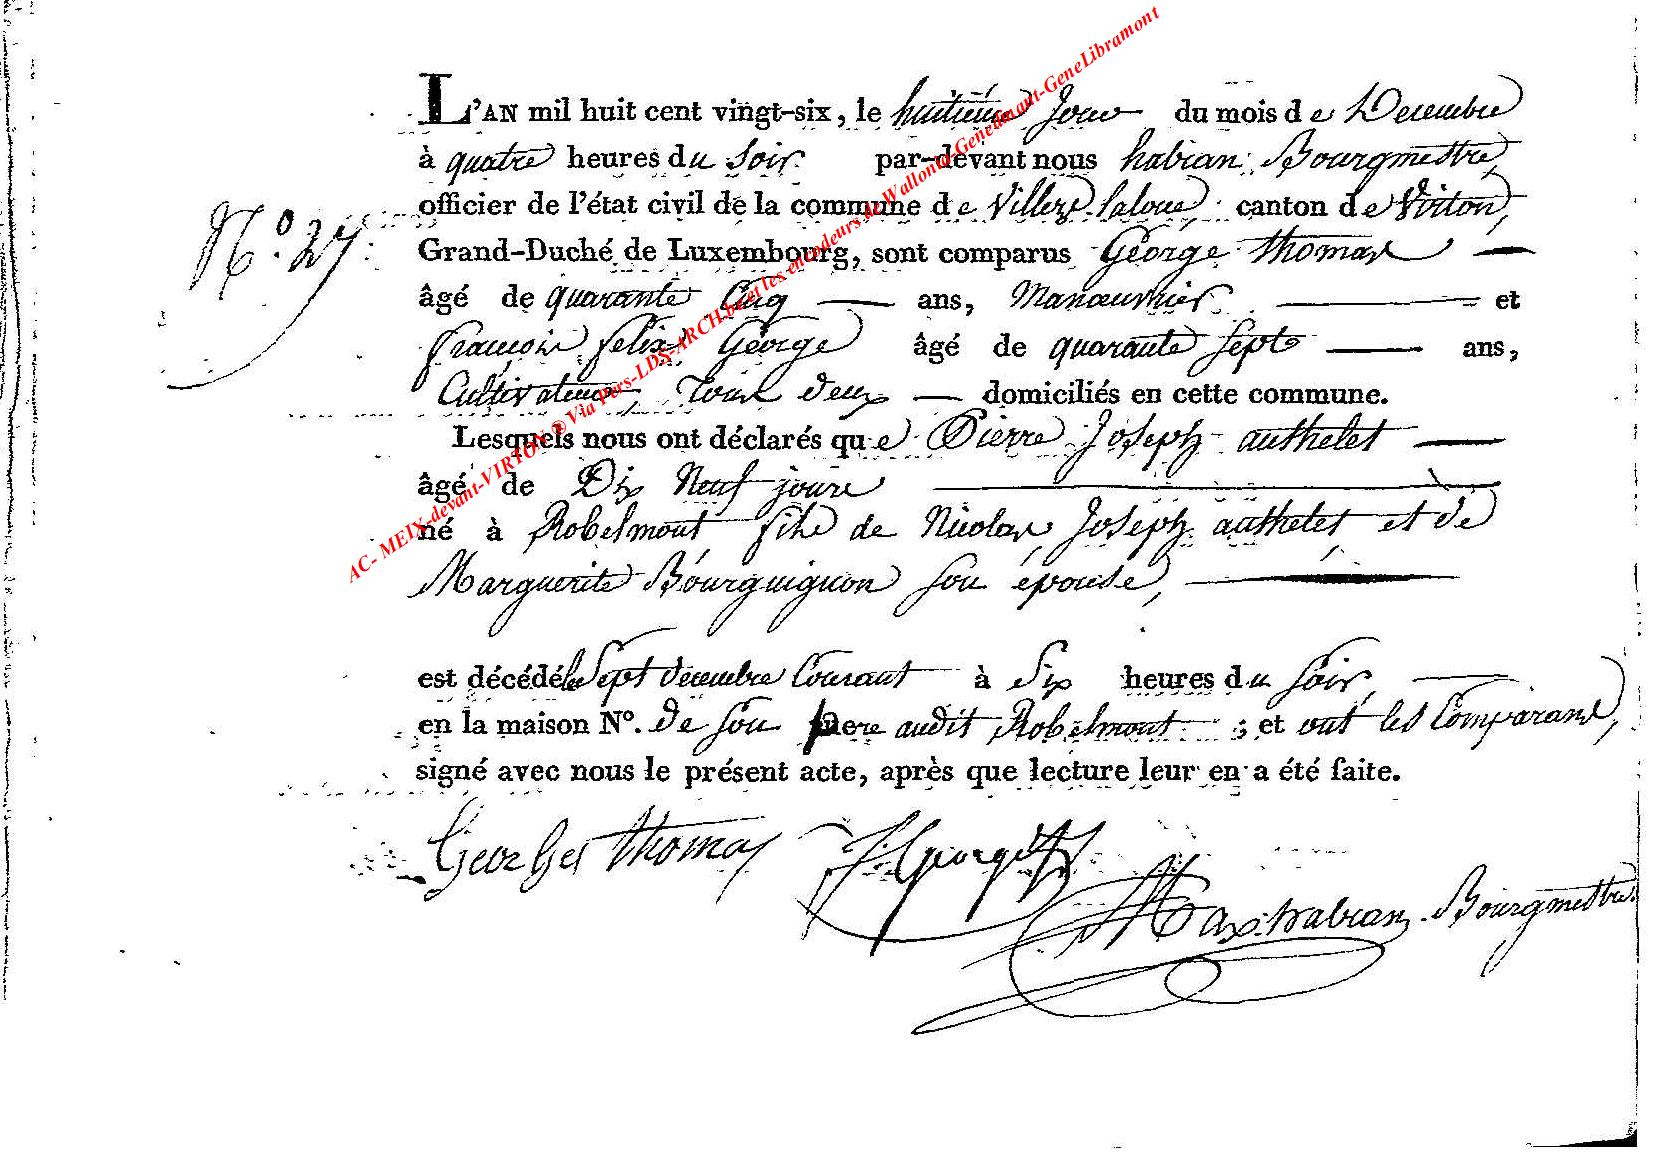 L'AN mil huit cent vingt-six, le huitieme Jour du mois de Decembre
à quatre heures du Soir par-devant nous habian Bourgmestre,
officier de l'état civil de la commune de Villers laloue, canton de Virton,
N.° 27 Grand-Duché de Luxembourg, sont comparus George thomas
âgé de quarante Cinq ans, Manoeuvrier et
françois felix George âgé de quarante Sept ans,
Cultivateur, Tous deux domiciliés en cette commune.
Lesquels nous ont déclarés que Pierre Joseph authelet
âgé de Dix Neuf jours
né à Robelmont fils de Nicolas Joseph authelet et de
Marguerite Bourguignon son épouse,
est décédé le Sept decembre Courant à Six heures du Soir,
en la maison N°. de son pere audit Robelmont ; et ont les Comparans,
signé avec nous le présent acte, après que lecture leur en a été faite.
Georges thomas F. George
Max habian Bourgmestre.
AC- MEIX-devant-VIRTON @ Via Pers-LDS-ARCH.be et les encodeurs de Wallonia-Genedinant-GeneLibramont